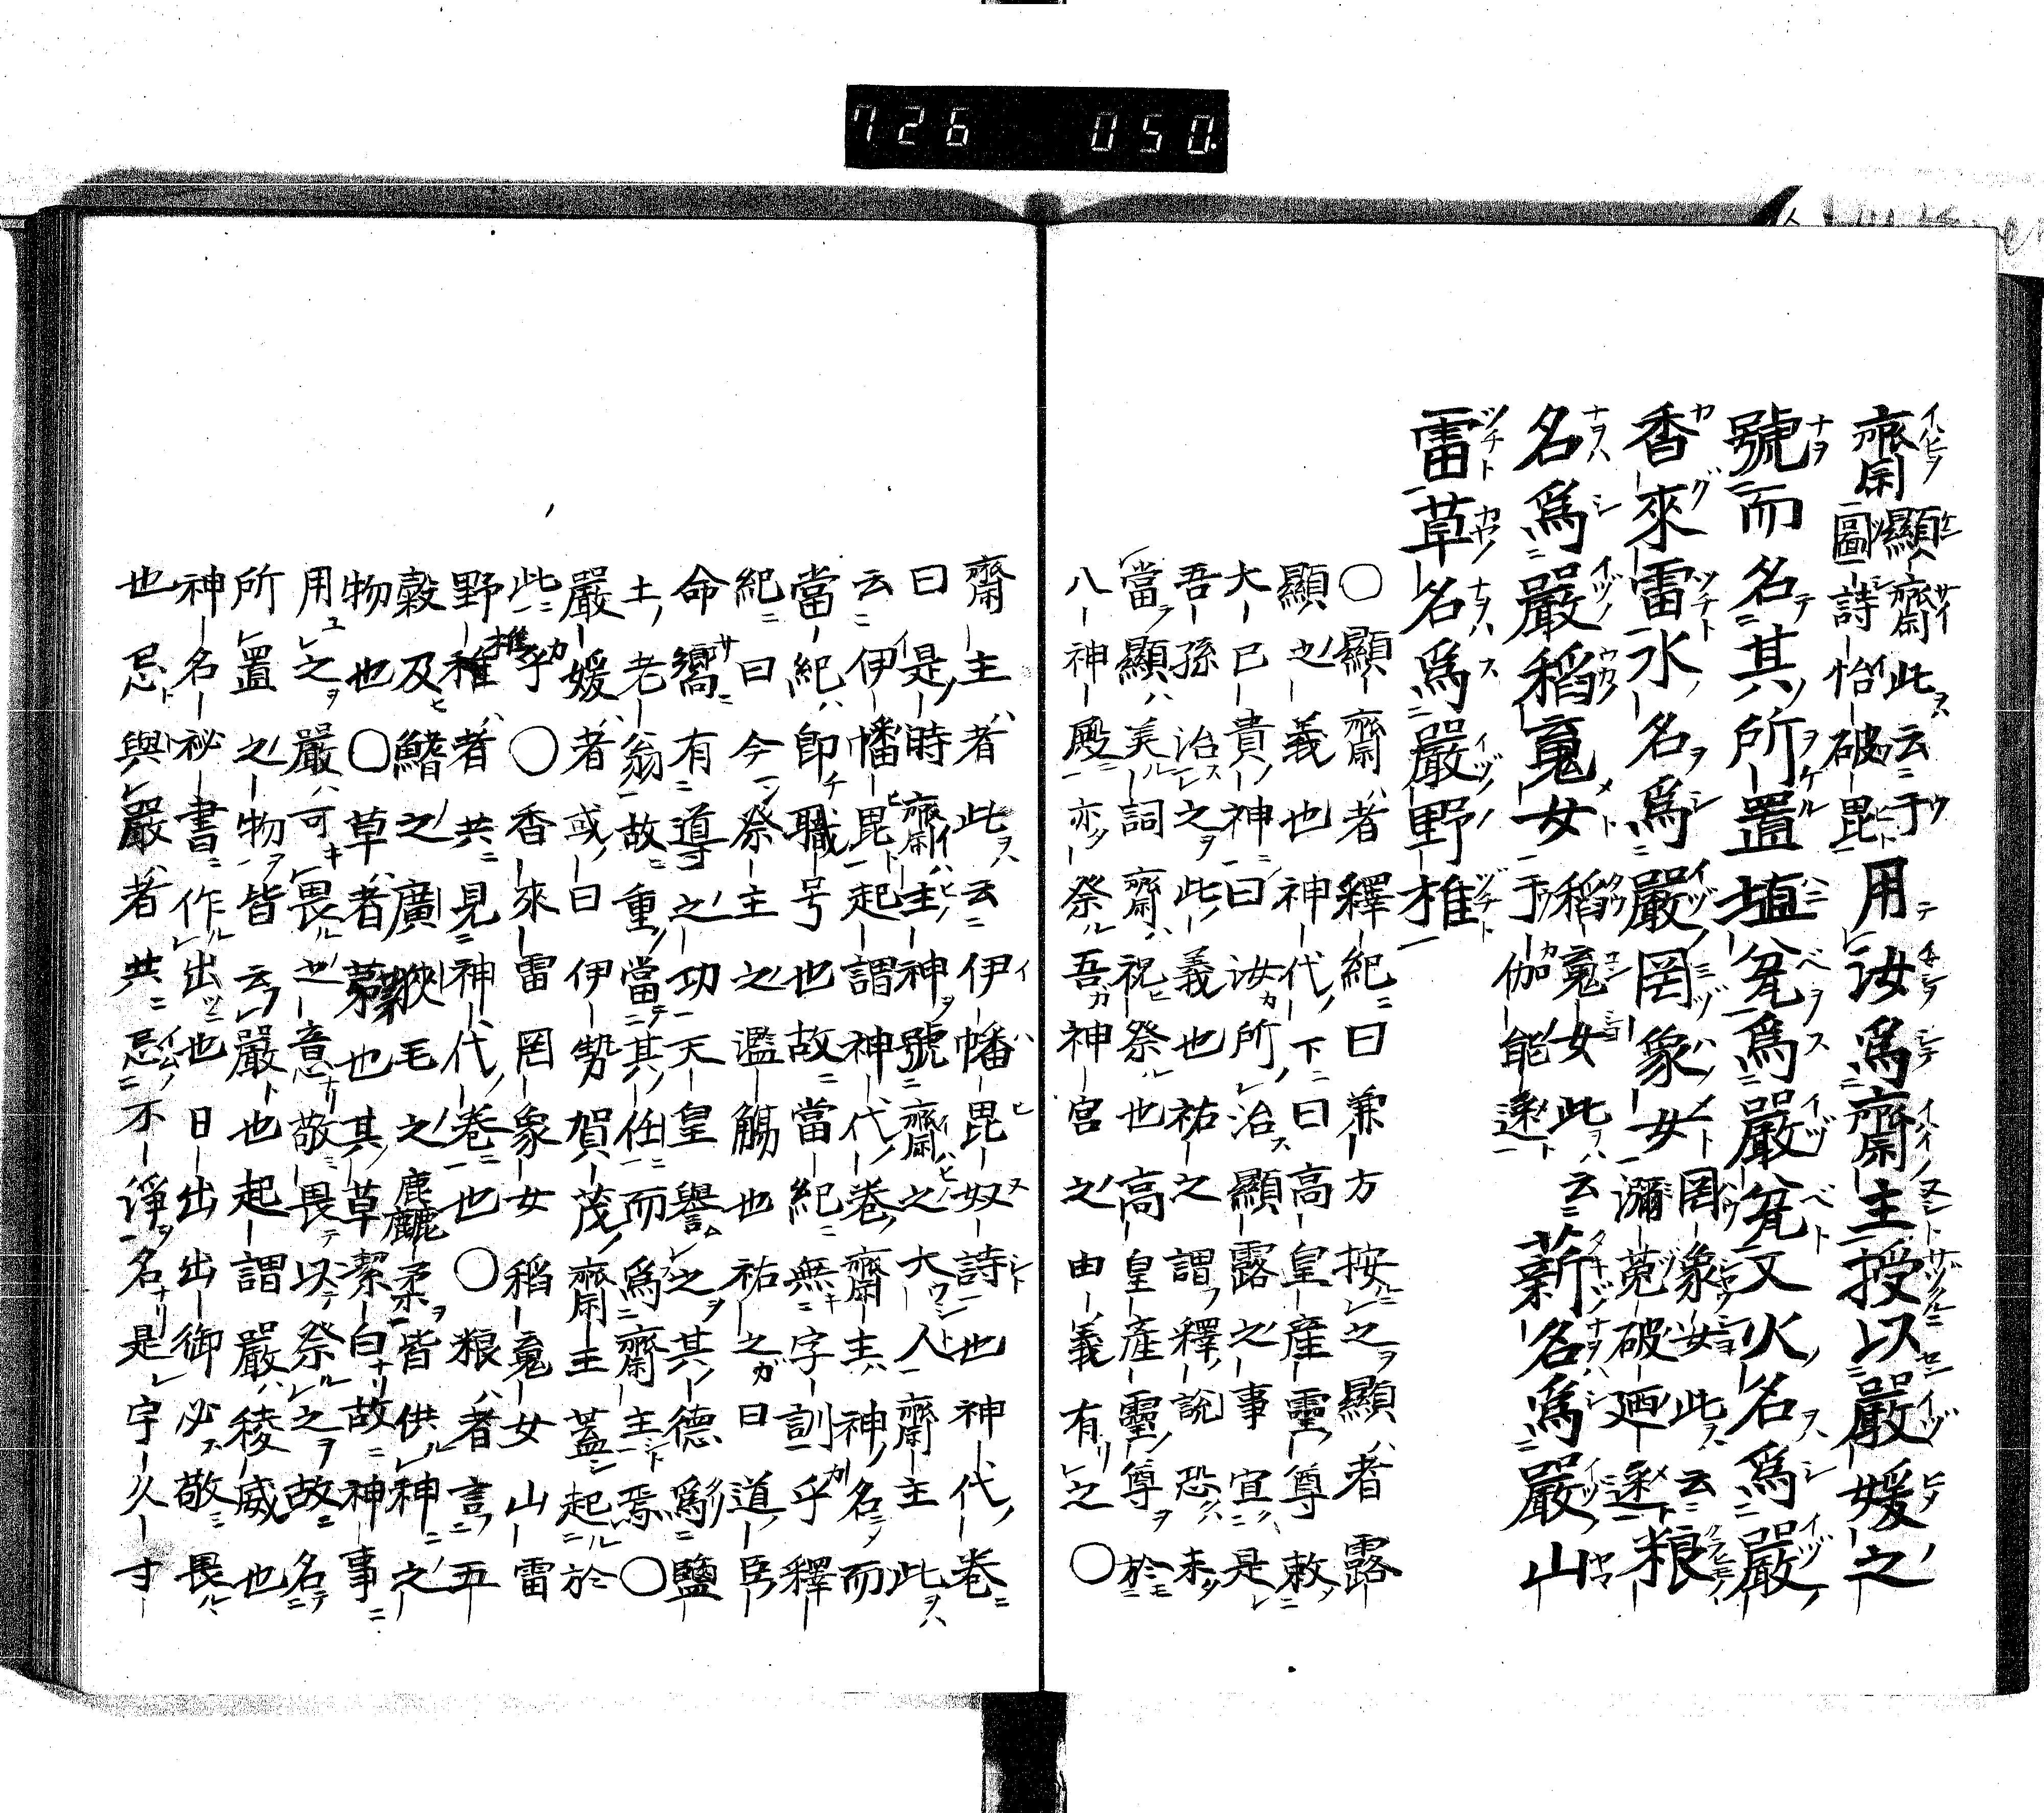 726 050.
齋顯齋此云于圖詩怡破毘用汝爲齋主授以嚴媛之
號而名其所置埴瓮爲嚴瓮又火名爲嚴
香來雷水名爲嚴罔象女罔象女此云瀰菟破廼迷粮
名爲嚴稻䰠女稻䰠女此云于伽能迷薪名爲嚴山
雷草名爲嚴野椎
〇顯齋者釋紀曰兼方按之顯者露
顯之義也神代下曰高皇産靈尊敕
大己貴神曰汝所治顯露之事宜是
吾孫治之此義也祐之謂釋説恐未
當顯美詞齋祝祭也高皇産靈尊於
八神殿亦祭吾神宮之由義有之〇
齋主者此云伊幡毘奴詩也神代卷
曰是時齋主神號齋之大人齋主此
云伊幡毘起謂神代卷齋主神名而
當紀即職号也故當紀無字訓乎釋
紀曰今祭主之濫觴也祐之曰道臣
命嚮有導之功天皇譽之其德爲鹽
土老翁故重當其任而爲齋主焉〇
嚴媛者或曰伊勢賀茂齋主蓋起於
此乎〇香來雷罔象女稻䰠女山雷
野椎者共見神代卷也〇粮者言五
穀及鰭之廣狹毛之麁柔皆供神之
物也〇草者薦也其草潔白故神事
用之嚴可畏之意敬畏以祭之故名
所置之物皆云嚴也起謂嚴稜威也
神名祕書作出也日出出御必敬畏
也忌與嚴者共忌不淨名是宇久寸